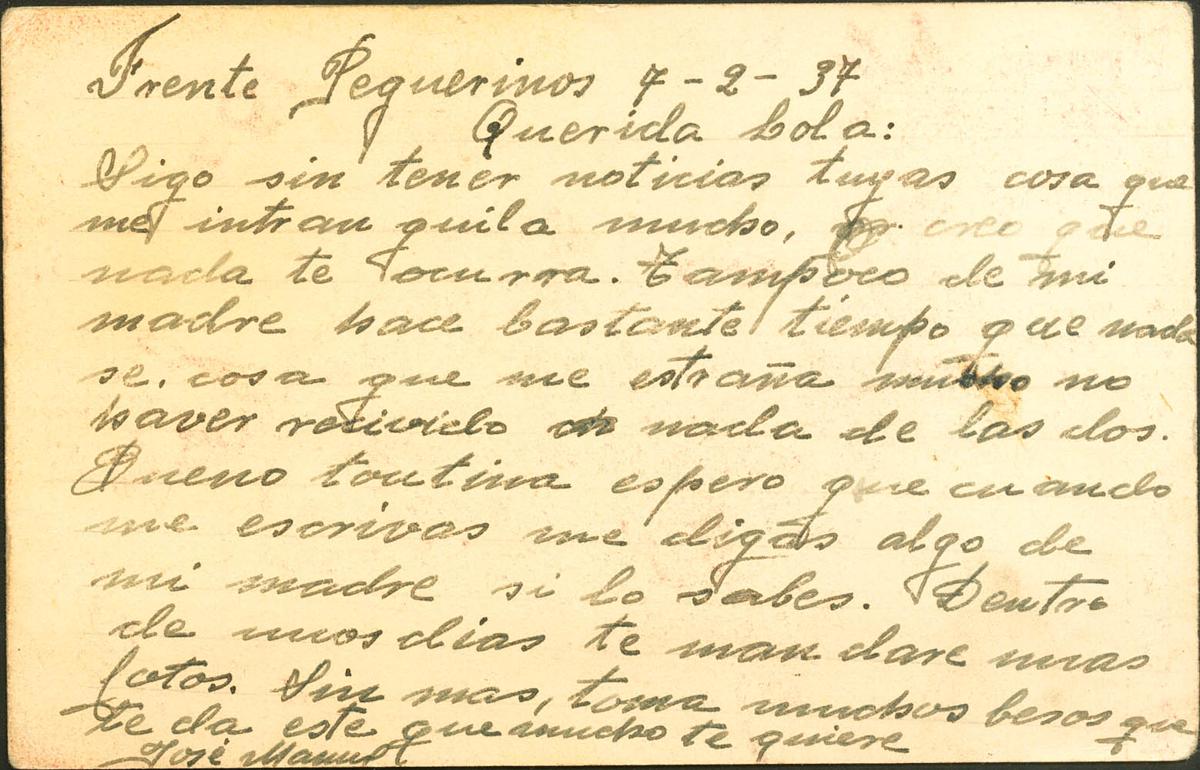 Frente Peguerinos 7-2-37
Querida Lola:
Sigo sin tener noticias tuyas cosa que
me intranquila mucho, creo que
nada te ocurra. Tampoco de mi
madre hace bastante tiempo que nada
se. cosa que me estraña mucho no
haver recivido nada de las dos.
Bueno toutina espero que cuando
me escrivas me digas algo de
mi madre si lo sabes. Dentro
de unos dias te mandare unas
fotos. Sin mas, toma muchos besos que
te da este que mucho te quiere
José Manuel